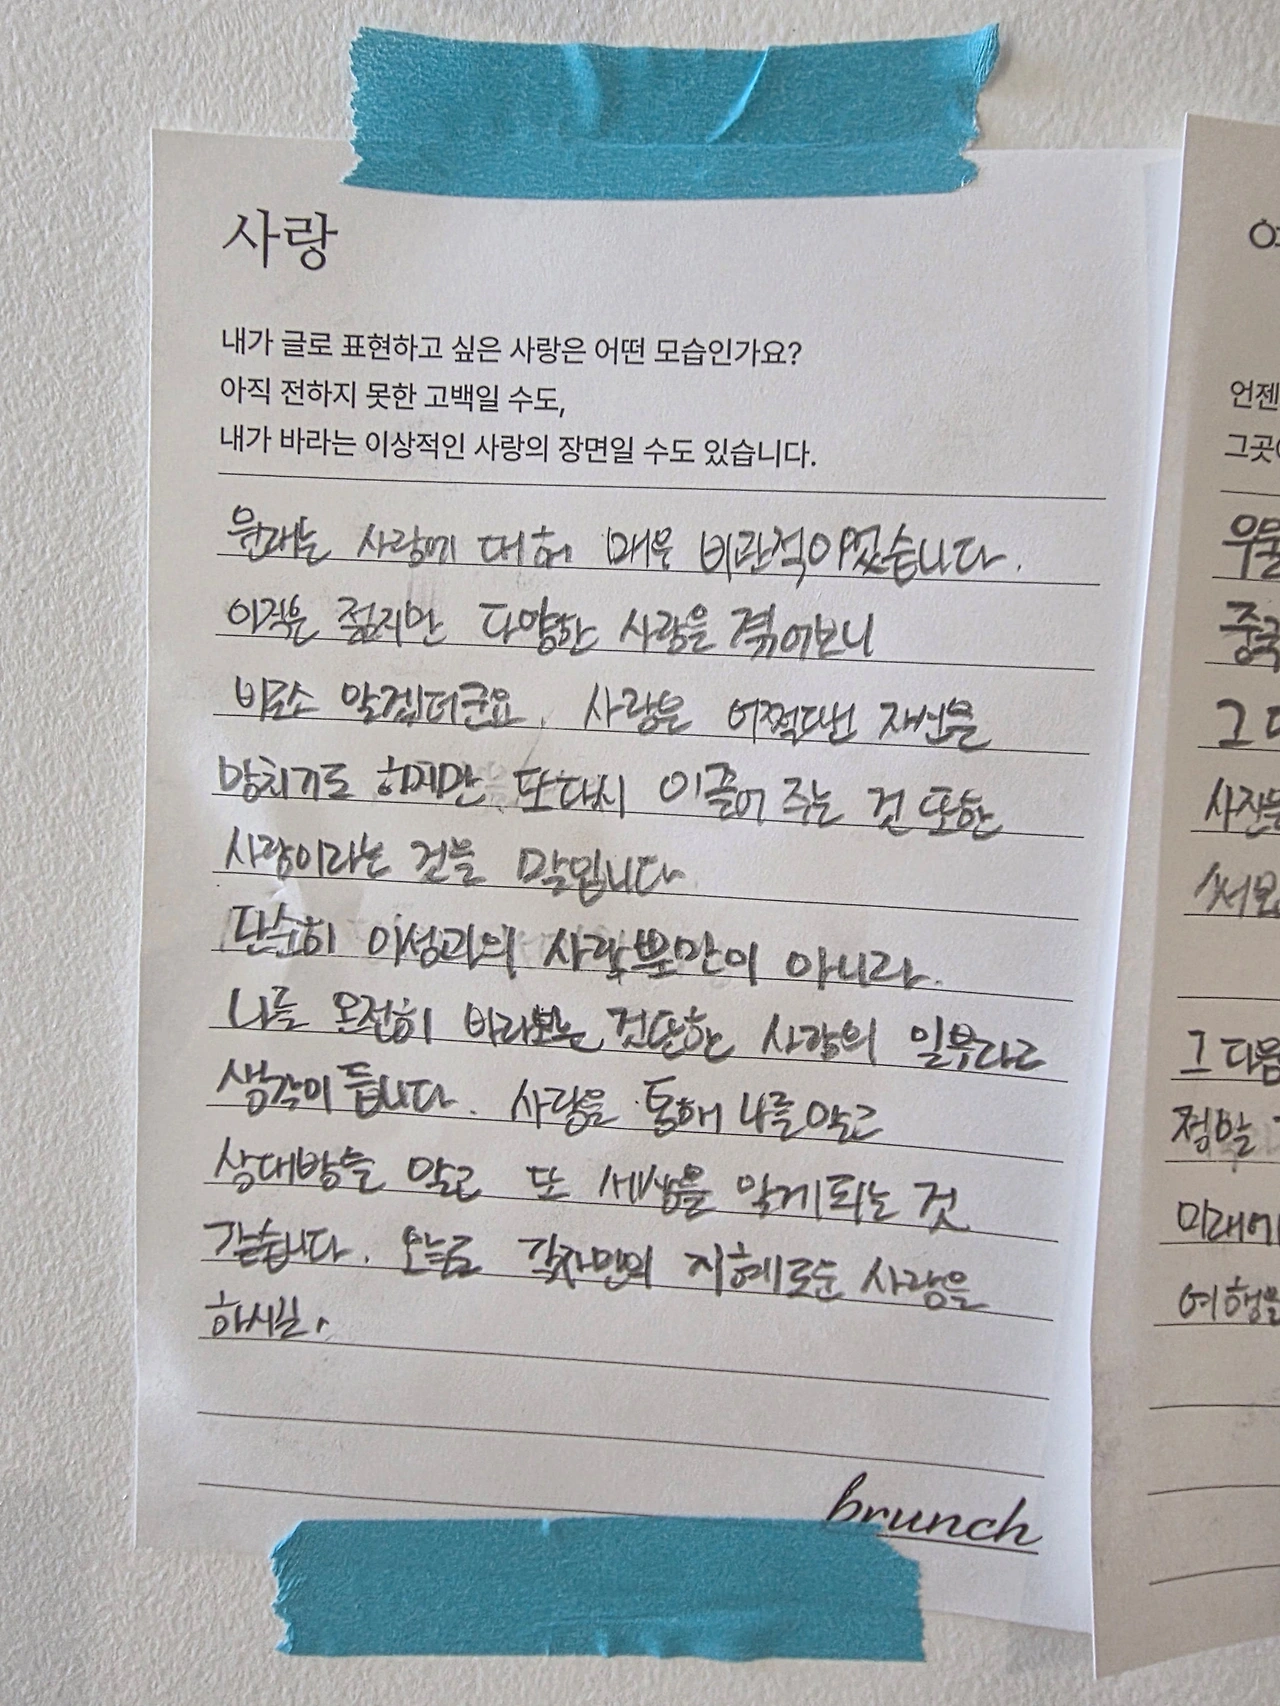 사랑
내가 글로 표현하고 싶은 사랑은 어떤 모습인가요?
아직 전하지 못한 고백일 수도,
내가 바라는 이상적인 사랑의 장면일 수도 있습니다.
원래는 사랑에 대해 매우 비관적이었습니다.
아직은 젊지만 다양한 사랑을 겪어보니
비로소 알겠더군요. 사랑은 어쩌면 자신을
망치기도 하지만 또다시 이끌어 주는 것 또한
사랑이라는 것을 말입니다
단순히 이성과의 사랑뿐만이 아니라.
나를 온전히 바라보는 것또한 사랑의 일부라고
생각이 듭니다. 사랑을 통해 나를알고
상대방을 알고 또 세상을 알게되는 것
같습니다. 오늘도 각자만의 지혜로운 사랑을
하시길,
brunch
언젠
그곳
그 다
그 다음
정말
미래에
여행을